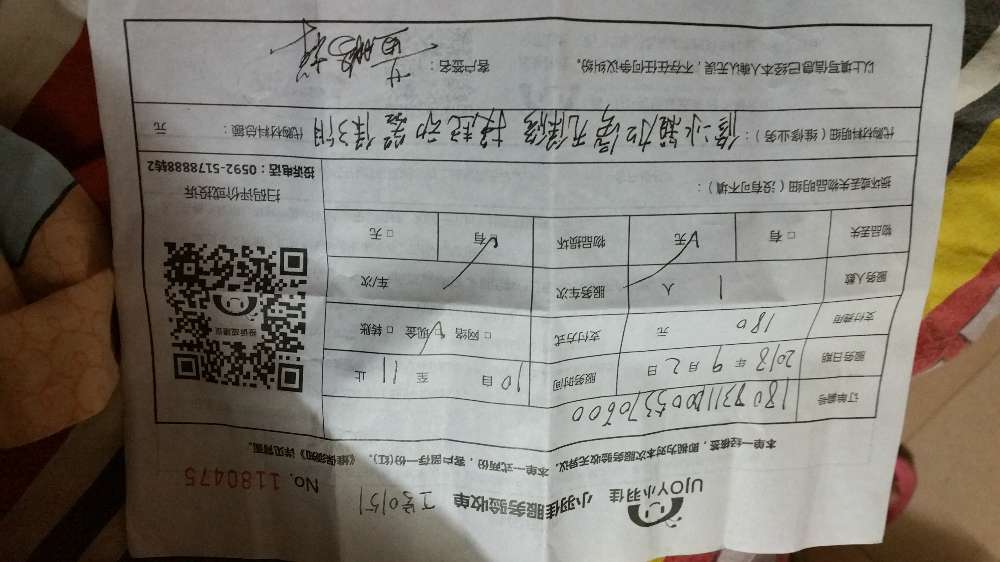 UJOY小羽佳
小羽佳服务验收单
No. 1180475
本单一经核签，即视为对本次服务验收无异议。本单一式两份，客户留存一份(红)。《维保须知》详见背面。
订单编号
服务日期 2018 年 9 月 2 日 服务时间 10 自 至 11 止
支付费用 180 元 支付方式 □ 网络 □ 现金 □ 转账
服务人数 1 人 服务车次 车/次
物品丢失 □ 有 无 物品损坏 □ 有 □ 无
投诉或建议
扫码评价或投诉
投诉电话：0592-5178888转2
损坏或丢失物品明细（没有可不填）：
代购材料明细（维修业务）： 代购材料总额： 元
以上填写信息已经本人确认无误，不存在任何争议纠纷。 客户签名：